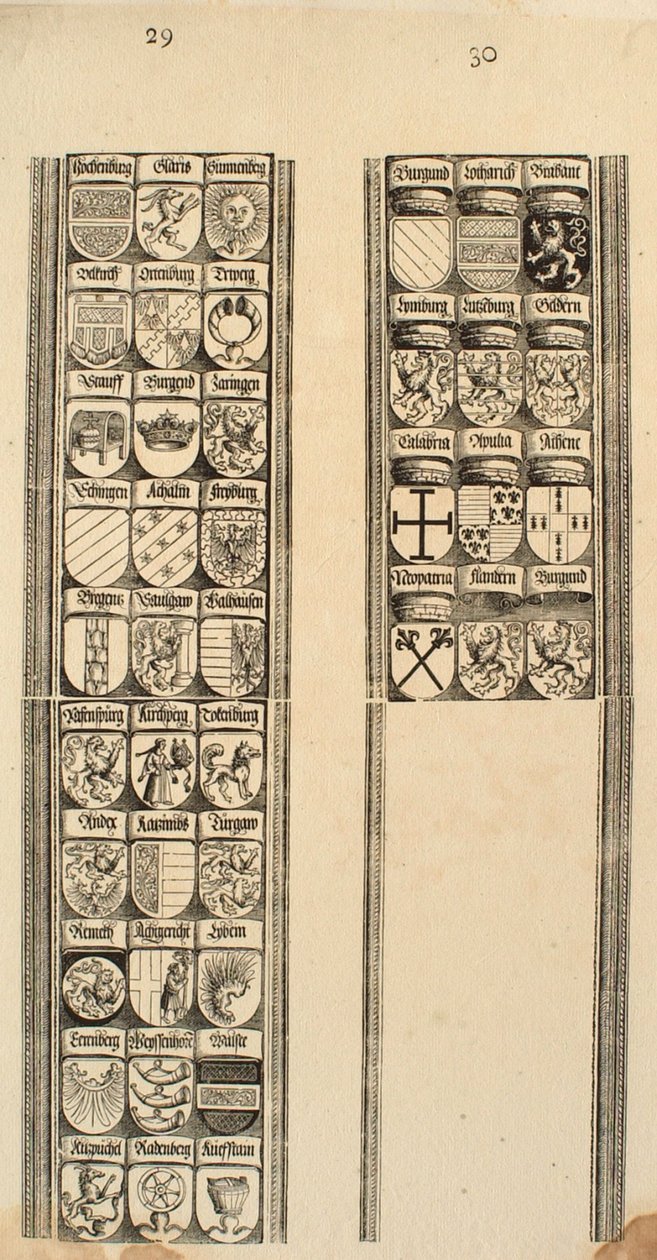 29
30
Rochenburg Glaris Sunnenberg
Velkirch Ortenburg Triberg
Stauff Burgend Zaringen
Echingen Achalm Freyburg
Bregenz Saulgaw Walhausen
Rafenspurg Kirchperg Tokenburg
Andex Kazimbs Turgaw
Remeth Achtgericht Lybem
Eerenberg Weyssenhorn
Kuzpuchel Radenberg Kueffstain
Burgund Lotharich Brabant
Lymburg Lutzeburg Geldern
Calabria Apulia Athene
Neopatria Flandern Burgund